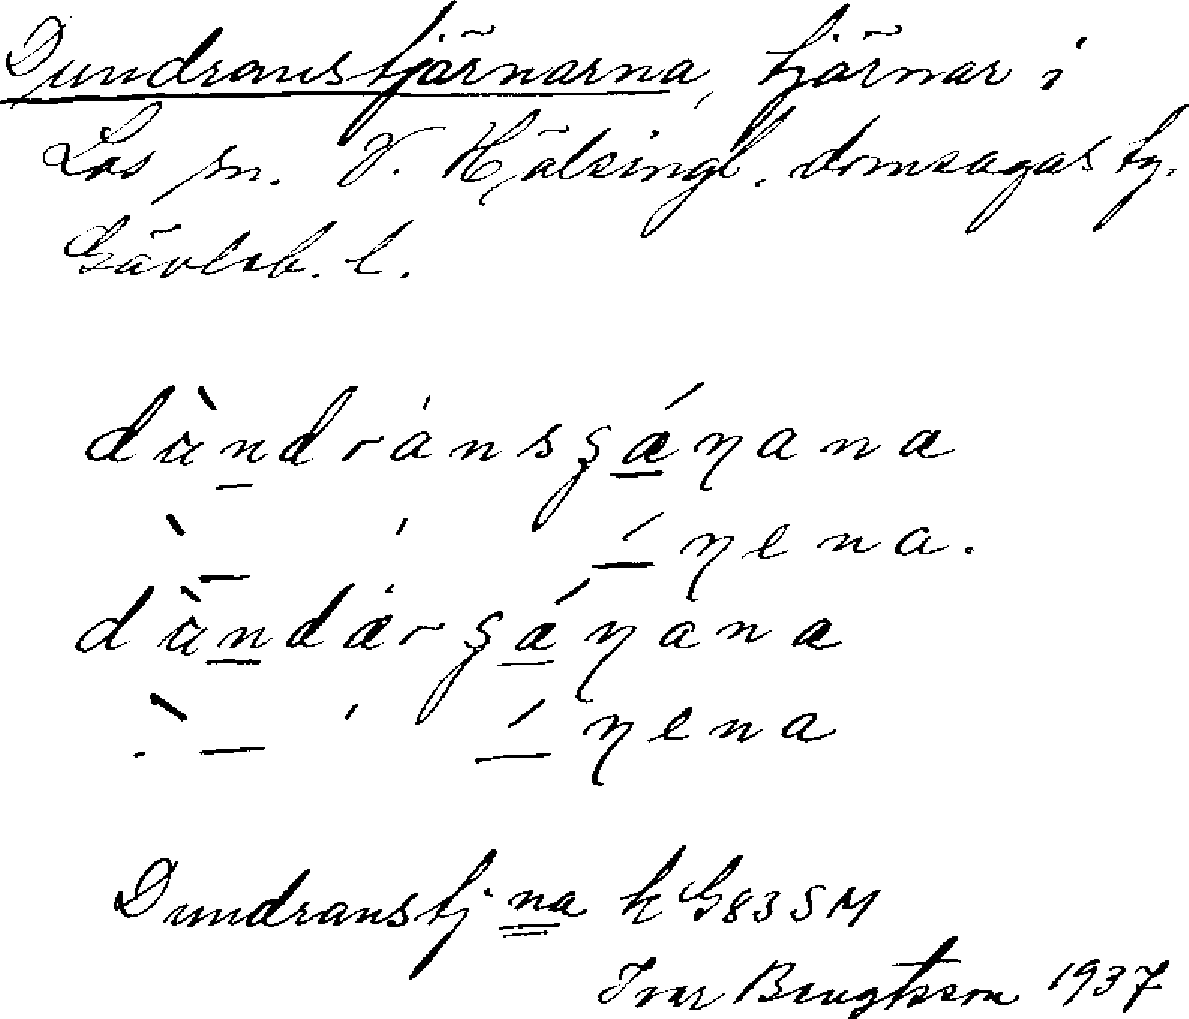 Dundranstjärnarna, tjärnar i
Los sn. V. Hälsingl. domsagas tg.
Gävleb. l.
dùndránsʂǽɳana
ɳena.
dùndǽrʂǽɳana
ɳena
Dundranstj:na k G83SM
Ivar Bengtsson 1937